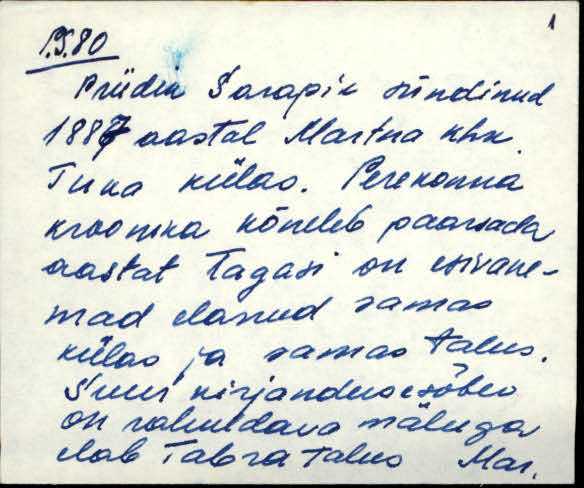 1
P.S. 80
Priidu Šarapik sündinud
1887 aastal Martna khk.
Tuka külas. Perekonna
kroonika kõneleb paarsada
aastat tagasi on esivane-
mad elanud samas
külas ja samas talus.
Suur kirjandusesõber
on rahuldava mäluga
elab Tabra talus Mar.